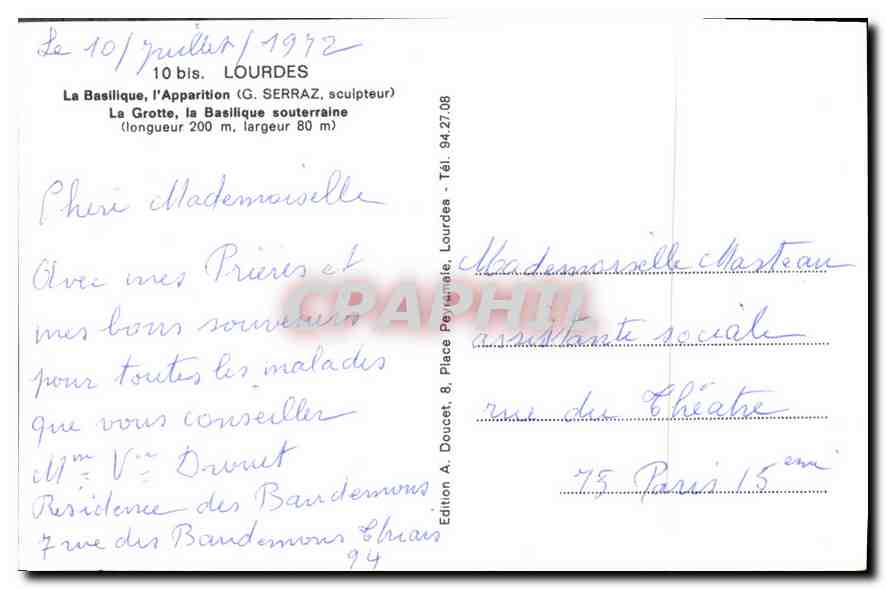 Le 10/Juillet/1972
10 bis. LOURDES
La Basilique, l'Apparition (G. SERRAZ, sculpteur)
La Grotte, la Basilique souterraine
(longueur 200 m, largeur 80 m)
Chère Mademoiselle
Avec mes Prières et
mes bons souvenirs
pour toutes les malades
que vous conseiller
Mme Vve Drouet
Résidence des Baudemons
7 rue des Baudemons Thiais
94
Edition A. Doucet, 8, Place Peyramale, Lourdes - Tél. 94.27.08
Mademoiselle Masteau
assistante sociale
rue du Théatre
75 Paris 15eme
CPAPHIL